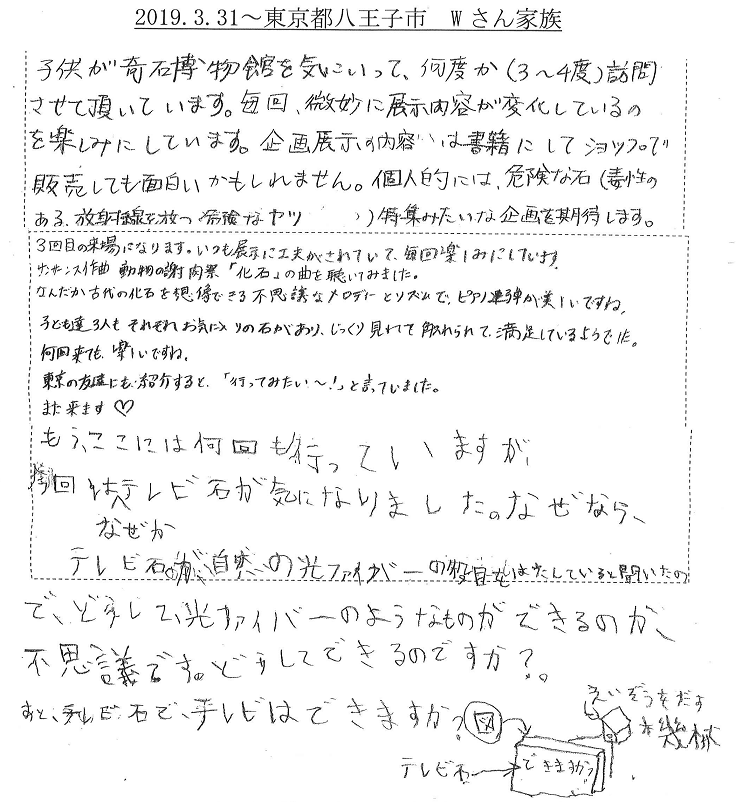 2019.3.31～東京都八王子市　Wさん家族
子供が奇石博物館を気にいって、何度か(3～4度)訪問
させて頂いています。毎回、微妙に展示内容が変化しているの
を楽しみにしています。企画展示の内容は書籍にしてショップで
販売しても面白いかもしれません。個人的には、危険な石(毒性の
ある、放射線を放つ 危険なヤツ　　)特集みたいな企画を期待します。
3回目の来場になります。いつも展示に工夫がされていて、毎回楽しみにしています。
サンサーンス作曲 動物の謝肉祭「化石」の曲を聴いてみました。
なんだか古代の化石を想像できる不思議なメロディーとリズムで、ピアノ連弾が美しいですね。
子ども達3人も それぞれお気に入りの石があり、じっくり見れて触れられて、満足しているようでした。
何回来ても、楽しいですね。
東京の友達にも紹介すると、「行ってみたい～!」と言っていました。
また来ます♡
もう、ここには何回も行っていますが、
今回は、テレビ石が気になりました。なぜなら、
なぜか
テレビ石が、自然の光ファイバーの役目をはたしていると聞いたの
で、どうして、光ファイバーのようなものができるのが、
不思議です。どうしてできるのですか？。
あと、テレビ石で、テレビはできますか？ 図
えいぞうをだす
機械
テレビ石→ できますか？